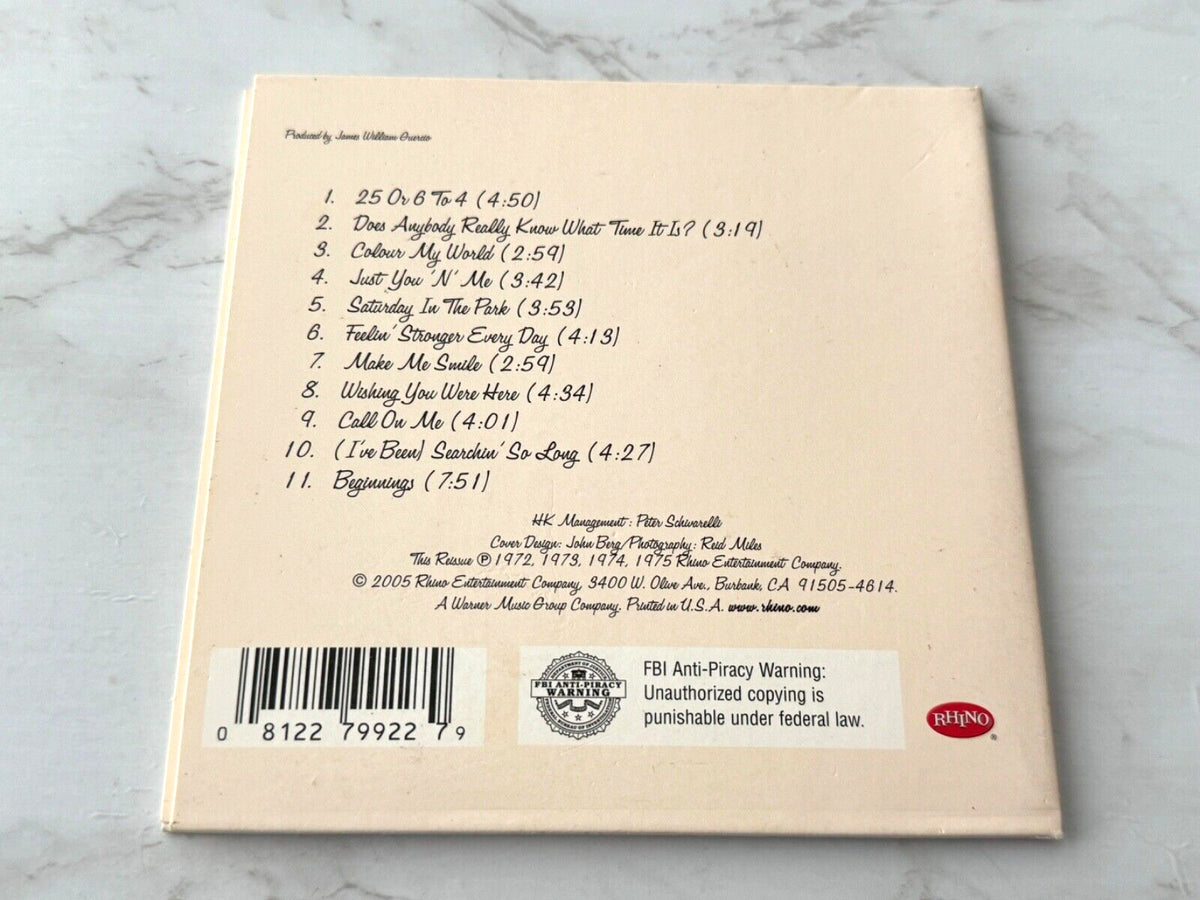 Produced by James William Guercio
1. 25 Or 6 To 4 (4:50)
2. Does Anybody Really Know What Time It Is? (3:19)
3. Colour My World (2:59)
4. Just You 'N' Me (3:42)
5. Saturday In The Park (3:53)
6. Feelin' Stronger Every Day (4:13)
7. Make Me Smile (2:59)
8. Wishing You Were Here (4:34)
9. Call On Me (4:01)
10. (I've Been) Searchin' So Long (4:27)
11. Beginnings (7:51)
HK Management: Peter Schivarelli
Cover Design: John Berg/Photography: Reid Miles
This Reissue ℗ 1972, 1973, 1974, 1975 Rhino Entertainment Company.
© 2005 Rhino Entertainment Company, 3400 W. Olive Ave., Burbank, CA 91505-4614.
A Warner Music Group Company. Printed in U.S.A. www.rhino.com
0 81122 79922 79
DEPARTMENT OF JUSTICE
FBI ANTI-PIRACY
WARNING
FEDERAL BUREAU OF INVESTIGATION
FBI Anti-Piracy Warning:
Unauthorized copying is
punishable under federal law.
RHINO
®